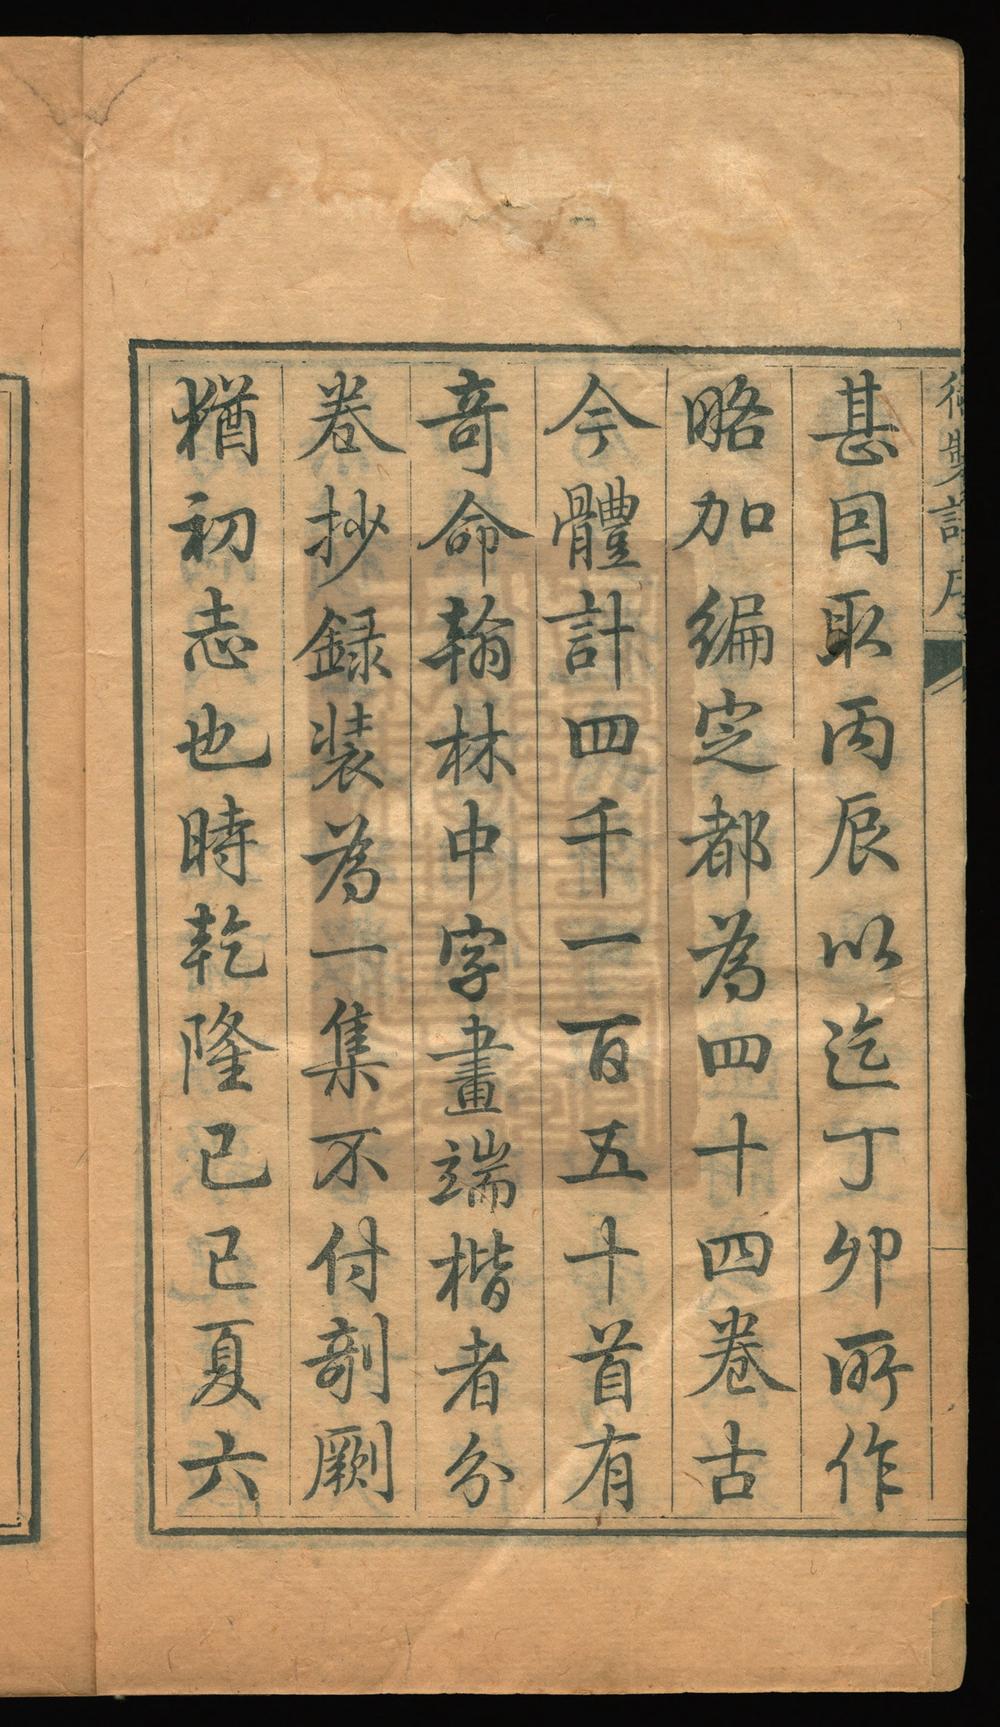 御製詩序
甚因取丙辰以迄丁卯所作
略加編定都為四十四卷古
今體計四千一百五十首有
奇命翰林中字畫端楷者分
卷抄録裝為一集不付剞劂
猶初志也時乾隆己巳夏六